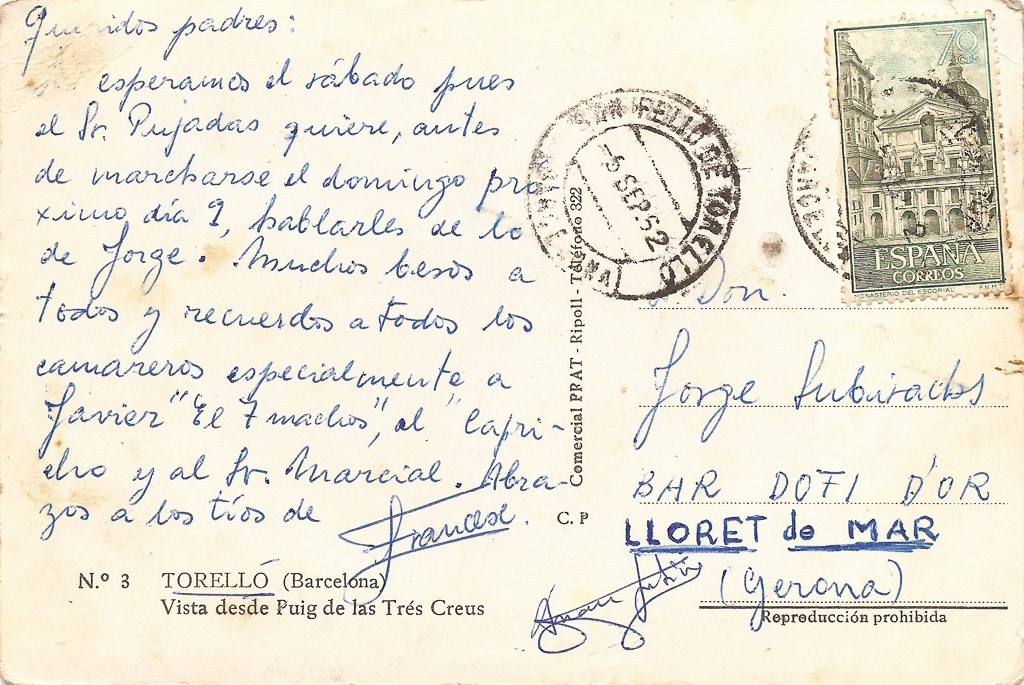 Queridos padres:
esperamos el sábado pues
el Sr. Pujadas quiere, antes
de marcharse el domingo pró-
ximo día 9, hablarles de lo
de Jorge. Muchos besos a
todos y recuerdos a todos los
camareros especialmente a
Javier "El 7 machos", al "Capri-
cho y al Sr. Marcial. Abra-
zos a los tíos de
Francesc.
N.º 3 TORELLÓ (Barcelona)
Vista desde Puig de las Trés Creus
C. P
Comercial PRAT - Ripoll - Teléfono 322
TORELLO
-6 SEP 62
70 CTS
ESPAÑA
CORREOS
MONASTERIO DEL ESCORIAL F.N.M.T
Don.
Jorge Subirachs
BAR DOFI D'OR
LLORET de MAR
(Gerona)
Reproducción prohibida